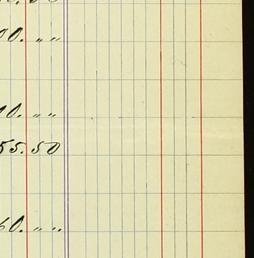 00. " "
10. " "
55.50
60. " "